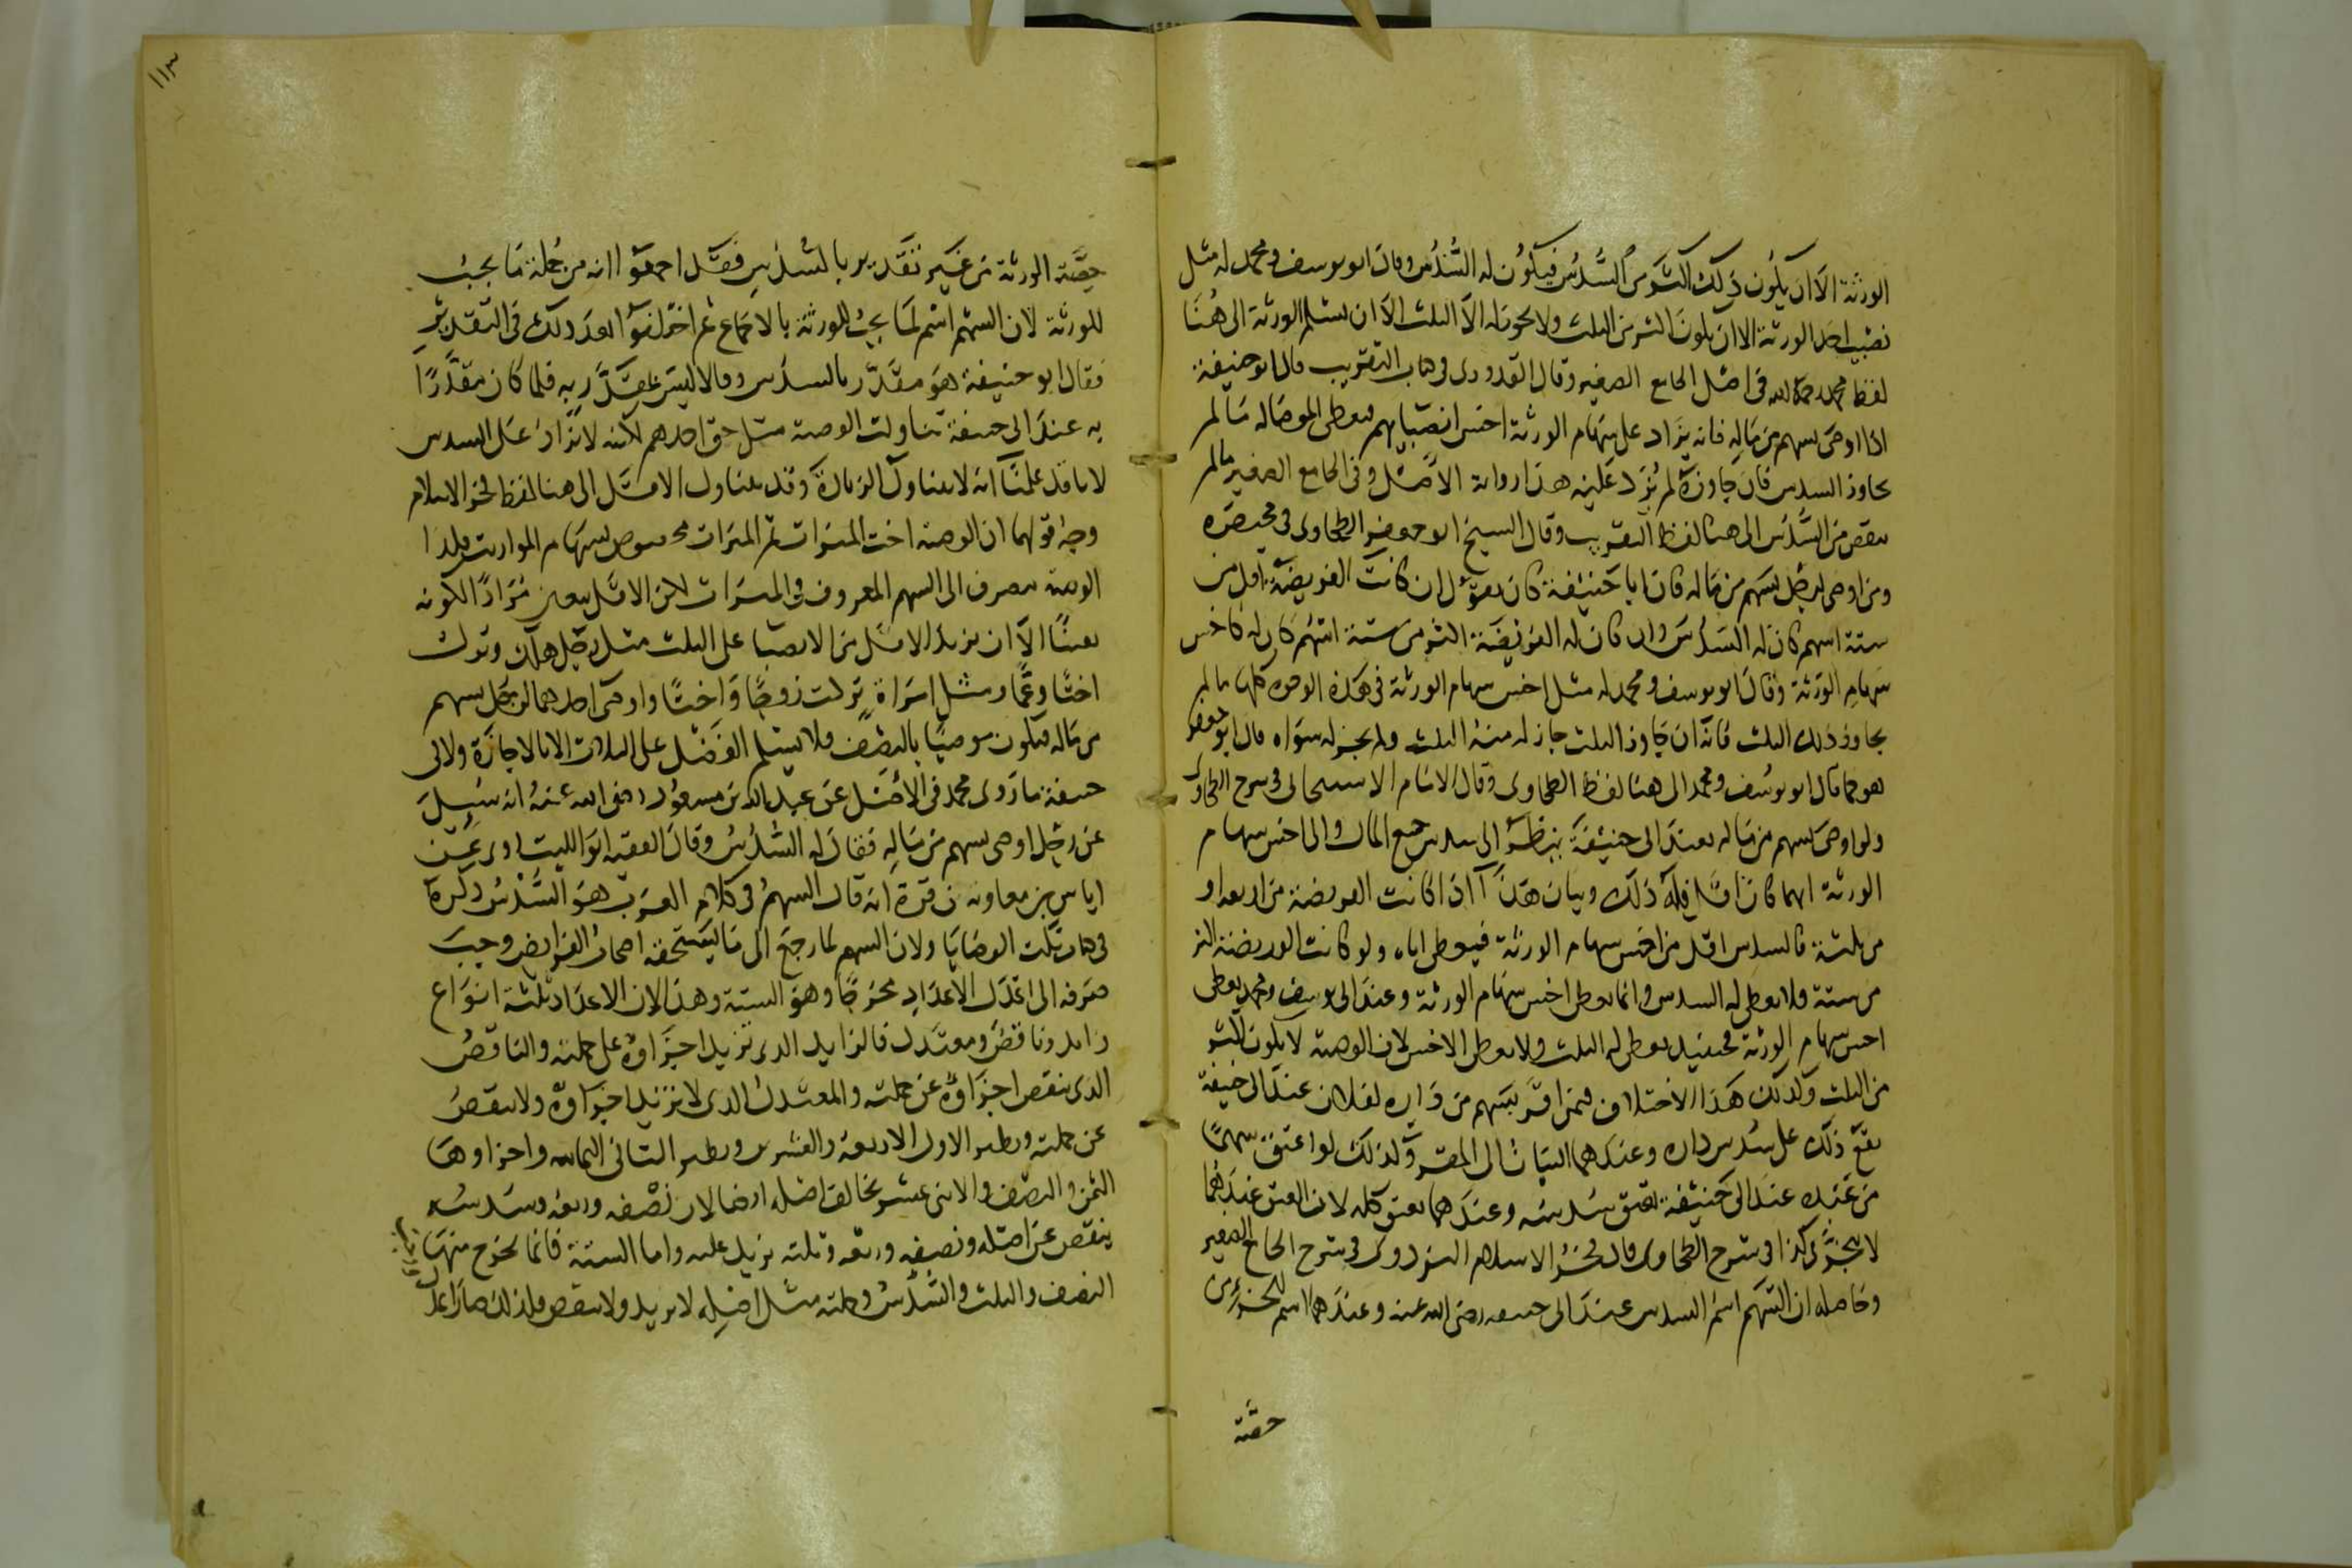 الورثة الا ان يكون ذلك اكثر من السدس فيكون له السدس وقال ابو يوسف ومحمد له مثل
نصيب احد الورثة الا ان يكون اكثر من الثلث ولا يكون له الا الثلث الا ان يسلم الورثة الى هنا
لفظ محمد رحمه الله فى اصل الجامع الصغير وقال القدورى فى كتاب التقريب قال ابو حنيفة
اذا اوصى بسهم من ماله فانه يزاد على سهام الورثة اخس انصبايهم فيعطى الموصا له ما لم
يجاوز السدس فان جاوزه لم يزد عليه هذا رواية الاصل وفى الجامع الصغير ما لم
ينقص من السدس الى هنا لفظ التقريب وقال الشيخ ابو جعفر الطحاوى فى مختصره
ومن اوصى لرجل بسهم من ماله فان ابا حنيفة كان يقول ان كانت الفريضة اقل من
ستة اسهم كان له السدس وان كان له الفريضة اكثر من ستة اسهم كان له كاخس
سهام الورثة وقال ابو يوسف ومحمد له مثل اخس سهام الورثة فى هذه الوجوه كلها ما لم
يجاوز ذلك الثلث فانه ان جاوز الثلث جاز له منه الثلث ولم يجز له سواه قال ابو جعفر
هو كما قال ابو يوسف ومحمد الى هنا لفظ الطحاوى وقال الامام الاسبيجابى فى شرح الطحاوى
ولو اوصى بسهم من ماله فعند ابى حنيفة ينظر الى سدس جميع المال والى اخس سهام
الورثة ايهما كان اقل فله ذلك وبيان هذا اذا كانت الفريضة من اربعة او
من ثلثة فالسدس اقل من اخس سهام الورثة فيعطى اياه ولو كانت الفريضة اكثر
من ستة فلا يعطى له السدس وانما يعطى اخس سهام الورثة وعند ابى يوسف ومحمد يعطى
اخس سهام الورثة فحينئذ يعطى له الثلث ولا يعطى الاخس لان الوصية لا يكون اكثر
من الثلث وكذلك هذا الاختلاف فيمن اقر بسهم من داره لفلان عند ابى حنيفة
يقع ذلك على سدس داره وعندهما البيان الى المقر وكذلك لو اعتق سهما
من عبده عند ابى حنيفة يعتق سدسه وعندهما يعتق كله لان العتق عندهما
لا يتجزى كذا فى شرح الطحاوى قال فخر الاسلام البزدوى فى شرح الجامع الصغير
وحاصله ان السهم اسم السدس عند ابى حنيفة رضى الله عنه وعندهما اسم لجزء من
حصة
١١٣
حصة الورثة من غير تقدير بالسدس فصل اجمعوا انه من جملة ما يجب
للورثة لان السهم اسم لما يجب للورثة بالاجماع ثم اختلفوا بعد ذلك فى التقدير
فقال ابو حنيفة هو مقدر بالسدس وقالا ليس بمقدر به فلما كان مقدرا
به عند ابى حنيفة تناولت الوصية مثل حق احدهم لانه لا يزاد على السدس
لانا قد علمنا انه لا يتناول الزيادة وقد يتناول الاقل الى هنا لفظ فخر الاسلام
وجه قولهما ان الوصية اخت الميراث ثم الميراث مخصوص بسهام المواريث فكذا
الوصية تصرف الى السهم المعروف فى الميراث لكن الاقل يتعين مرادا لكونه
يقينا الا ان يزيد الاقل من الانصبا على الثلث مثل رجل هلك وترك
اختا وعما ومثل امراة تركت زوجا واختا واوصى احدهما لرجل بسهم
من ماله فيكون موصيا بالنصف فلا يسلم الفضل على الثلث الا بالاجازة ولابى
حنيفة ما روى محمد فى الاصل عن عبد الله بن مسعود رضى الله عنه انه سئل
عن رجل اوصى بسهم من ماله فقال له السدس وقال الفقيه ابو الليث روى عن
اياس بن معاوية بن قرة انه قال السهم فى كلام العرب هو السدس ذكره
فى كتاب نكت الوصايا ولان السهم لما رجع الى ما يستحقه اصحاب الفرايض وجب
صرفه الى اعدل الاعداد مخرجا وهو الستة وهذا لان الاعداد ثلثة انواع
زايد وناقص ومعتدل فالزايد الذى تزيد اجزاوه على جملته والناقص
الذى ينقص اجزاوه عن جملته والمعتدل الذى لا يزيد اجزاوه ولا ينقص
عن جملته ونظير الاول الاربعة والعشرين ونظير الثانى الثمانية واجزاوها
الثمن والنصف والاثنى عشر يخالف اصله ايضا لان نصفه وربعه وسدسه
ينقص عن اصله ونصفه وربعه وثلثه يزيد عليه واما الستة فانما يخرج منها
النصف والثلث والسدس وجملته مثل اصله لا يزيد ولا ينقص فلذلك صار اعدل